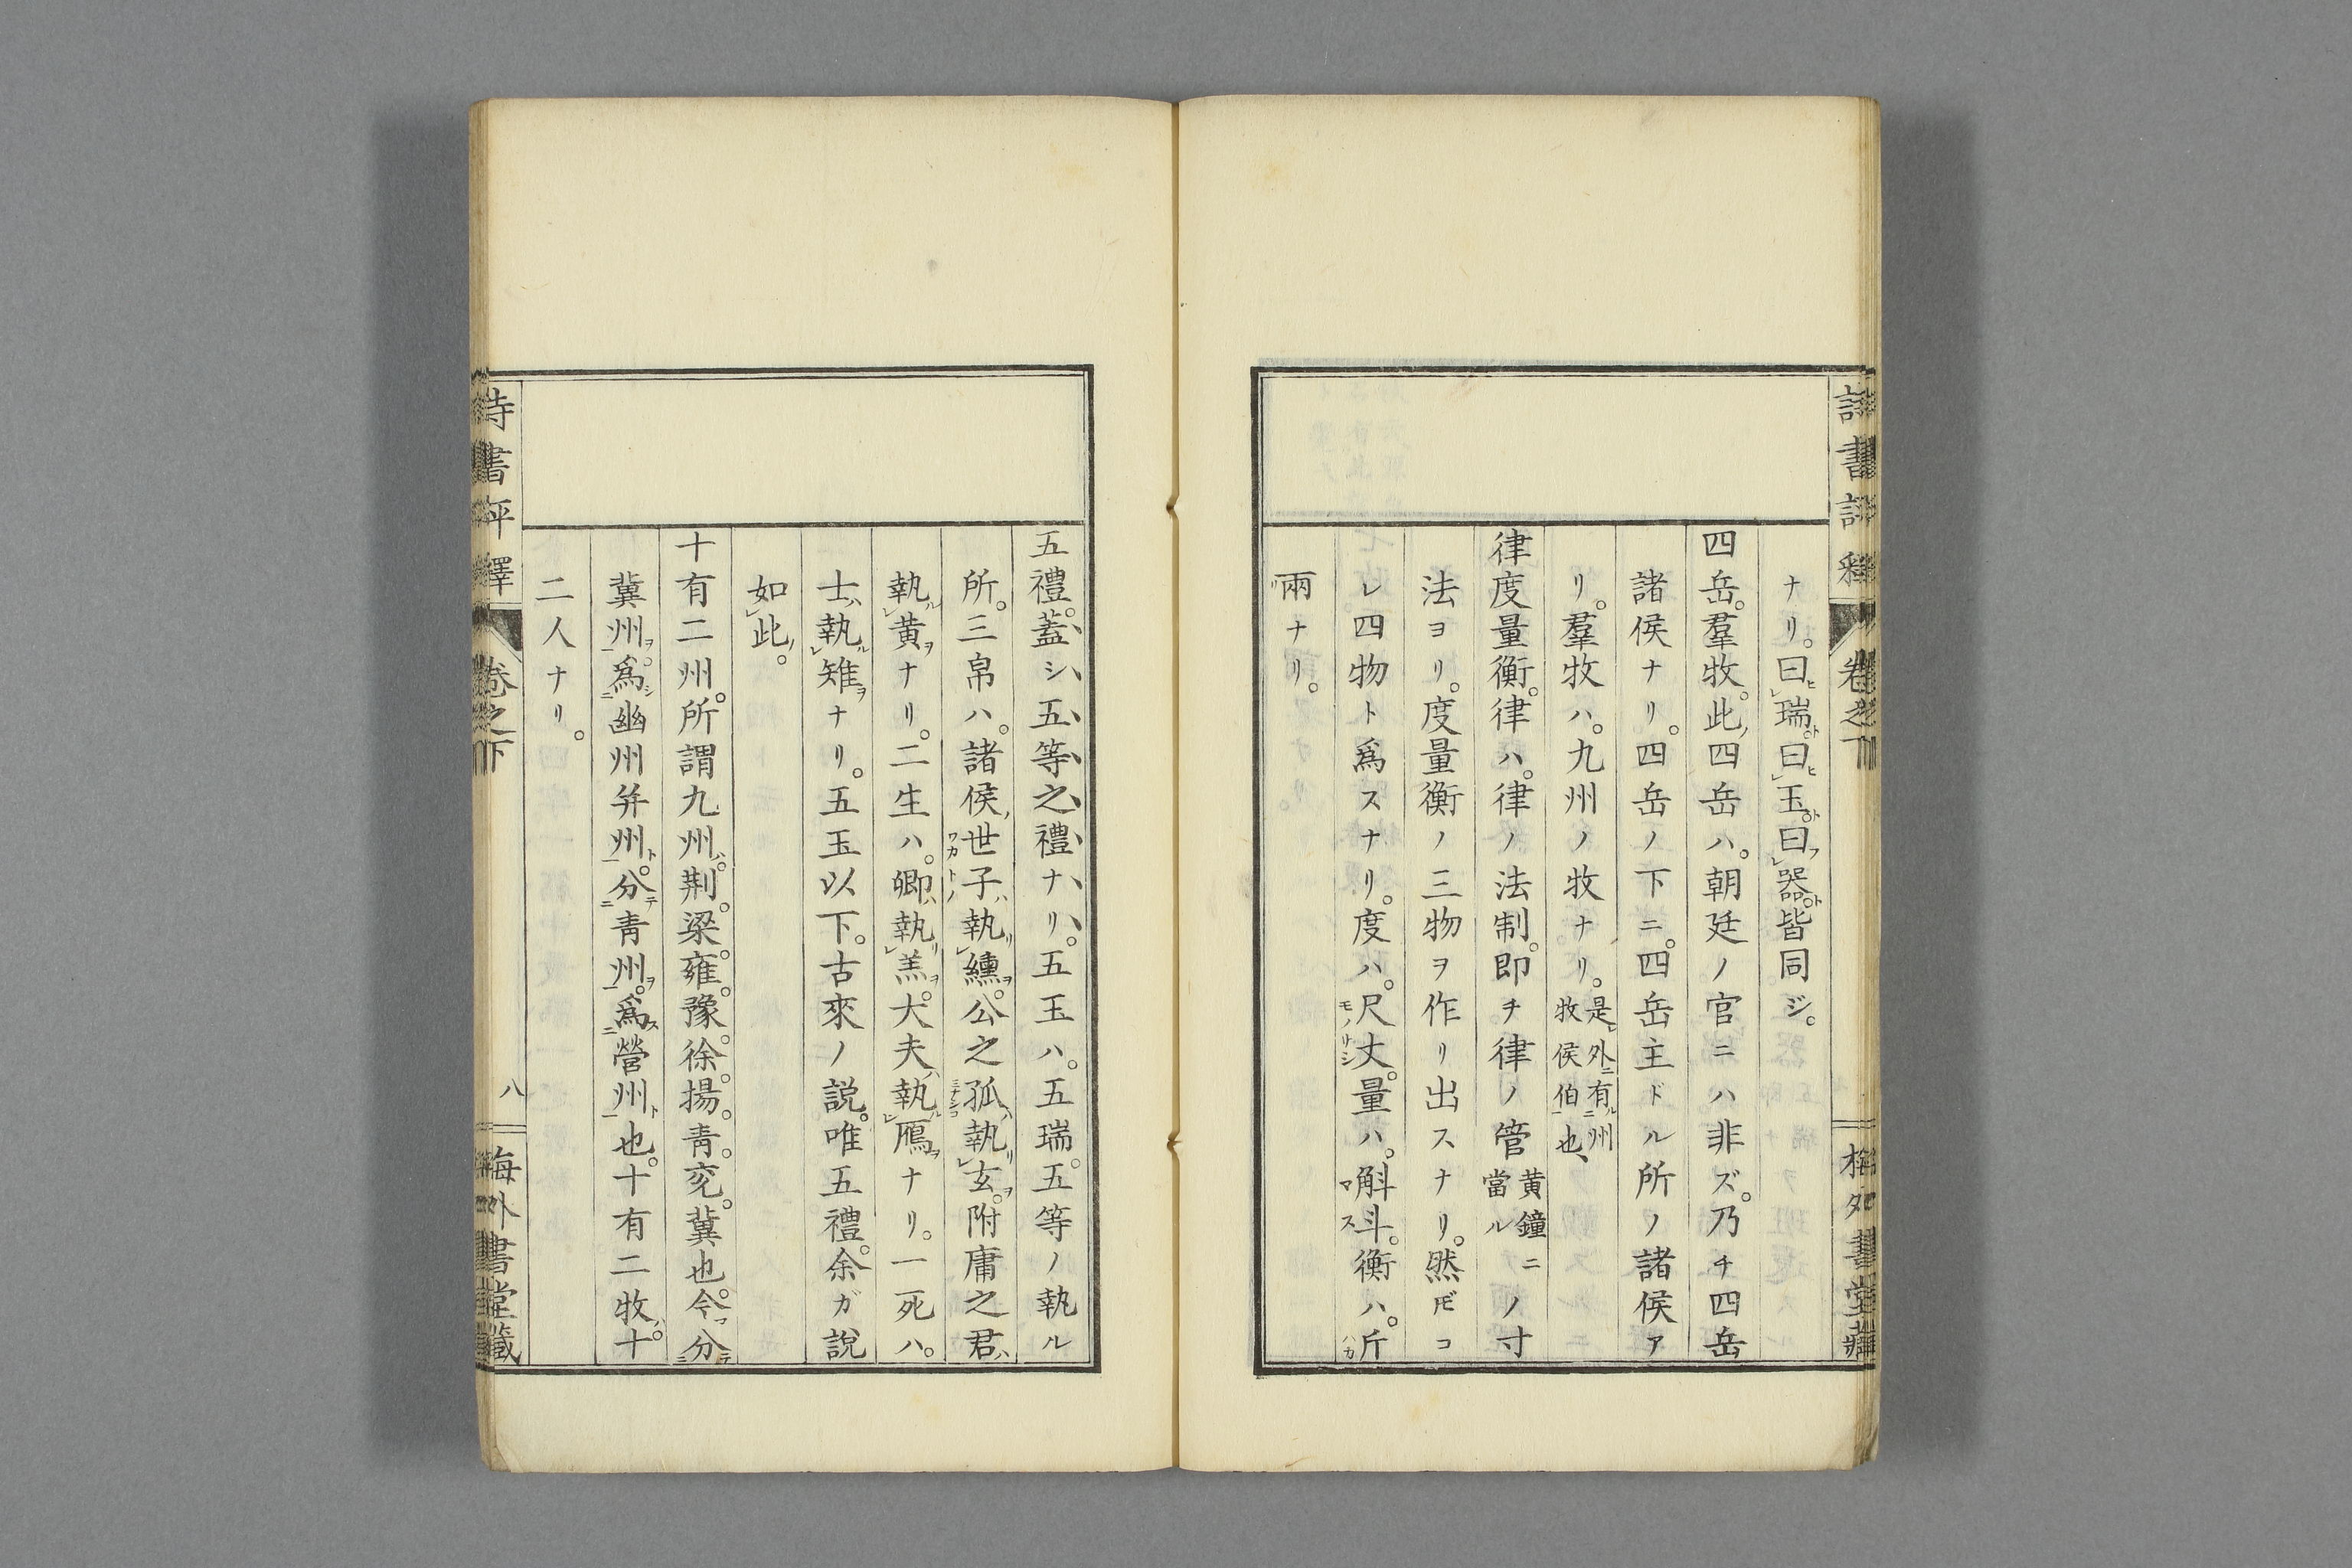 ナリ。曰瑞。曰玉。曰器。皆同ジ。
四岳。羣牧。此四岳ハ。朝廷ノ官ニハ非ズ。乃チ四岳
諸侯ナリ。四岳ノ下ニ。四岳主ドル所ノ諸侯ア
リ。羣牧ハ。九州ノ牧ナリ。是外有州牧侯伯也、
律度量衡。律ハ。律ノ法制。即チ律ノ管黄鐘ニ當ルノ寸
法ヨリ。度量衡ノ三物ヲ作リ出スナリ。然𪜈コ
レ四物ト爲スナリ。度ハ。尺丈。量ハ。斛斗。衡ハ。斤
兩ナリ。
五禮。蓋シ五等之禮ナリ。五玉ハ。五瑞。五等ノ執ル
所。三帛ハ。諸侯世子執纁。公之孤執玄。附庸之君
執黄ナリ。二生ハ。卿執羔。大夫執鴈ナリ。一死ハ。
士執雉ナリ。五玉以下。古來ノ説。唯五禮。余ガ説
如此。
十有二州。所謂九州。荆。梁。雍。豫。徐。揚。青。兖。冀也。今分
冀州。爲幽州并州。分青州。爲營州也。十有二牧。十
二人ナリ。
詩書評釋 卷之下 八 梅外書堂藏